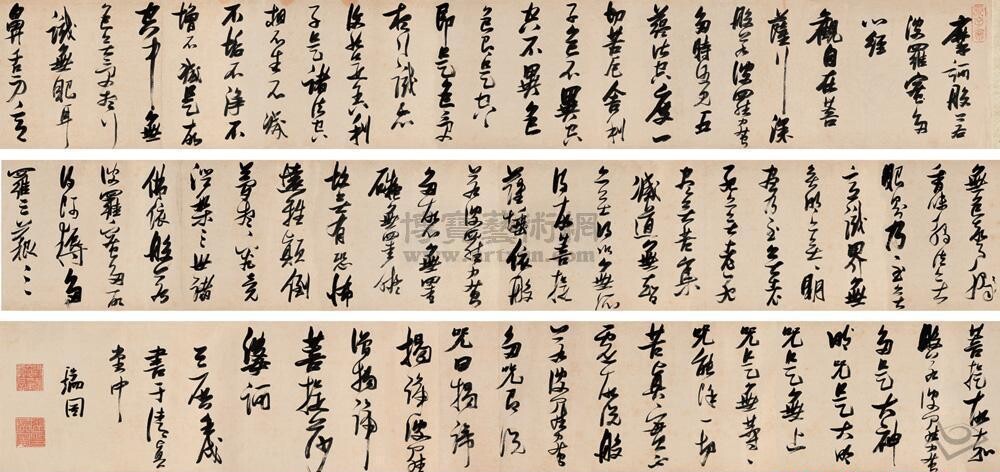 摩訶般若
波羅密多
心經
觀自在菩
薩行深
般若波羅蜜
多時照見五
蘊皆空度一
切苦厄舍利
子色不異空
空不異色
色即是空空
即是色受
想行識亦
復如是舍利
子是諸法空
相不生不滅
不垢不淨不
增不減是故
空中無
色無受想行
識無眼耳
鼻舌身意
無色聲
香味觸法無
眼界乃至無
意識界無
無明亦無無明
盡乃至無老
死亦無老死
盡無苦集
滅道無智
亦無得以無所
得故菩提
薩埵依般
若波羅蜜
多故心無罣
礙無罣礙
故無有恐怖
遠離顛倒
夢想究竟
涅槃三世諸
佛依般若
波羅蜜多故
得阿耨多
羅三藐三
菩提故知
般若波羅蜜
多是大神
咒是大明
咒是無上
咒是無等等
咒能除一切
苦真實不
虛故說般
若波羅蜜
多咒即說
咒曰揭諦
揭諦波羅
僧揭諦
菩提薩
婆訶
書于清真
堂中
瑞圖
博寶藝術網
www.artxun.com